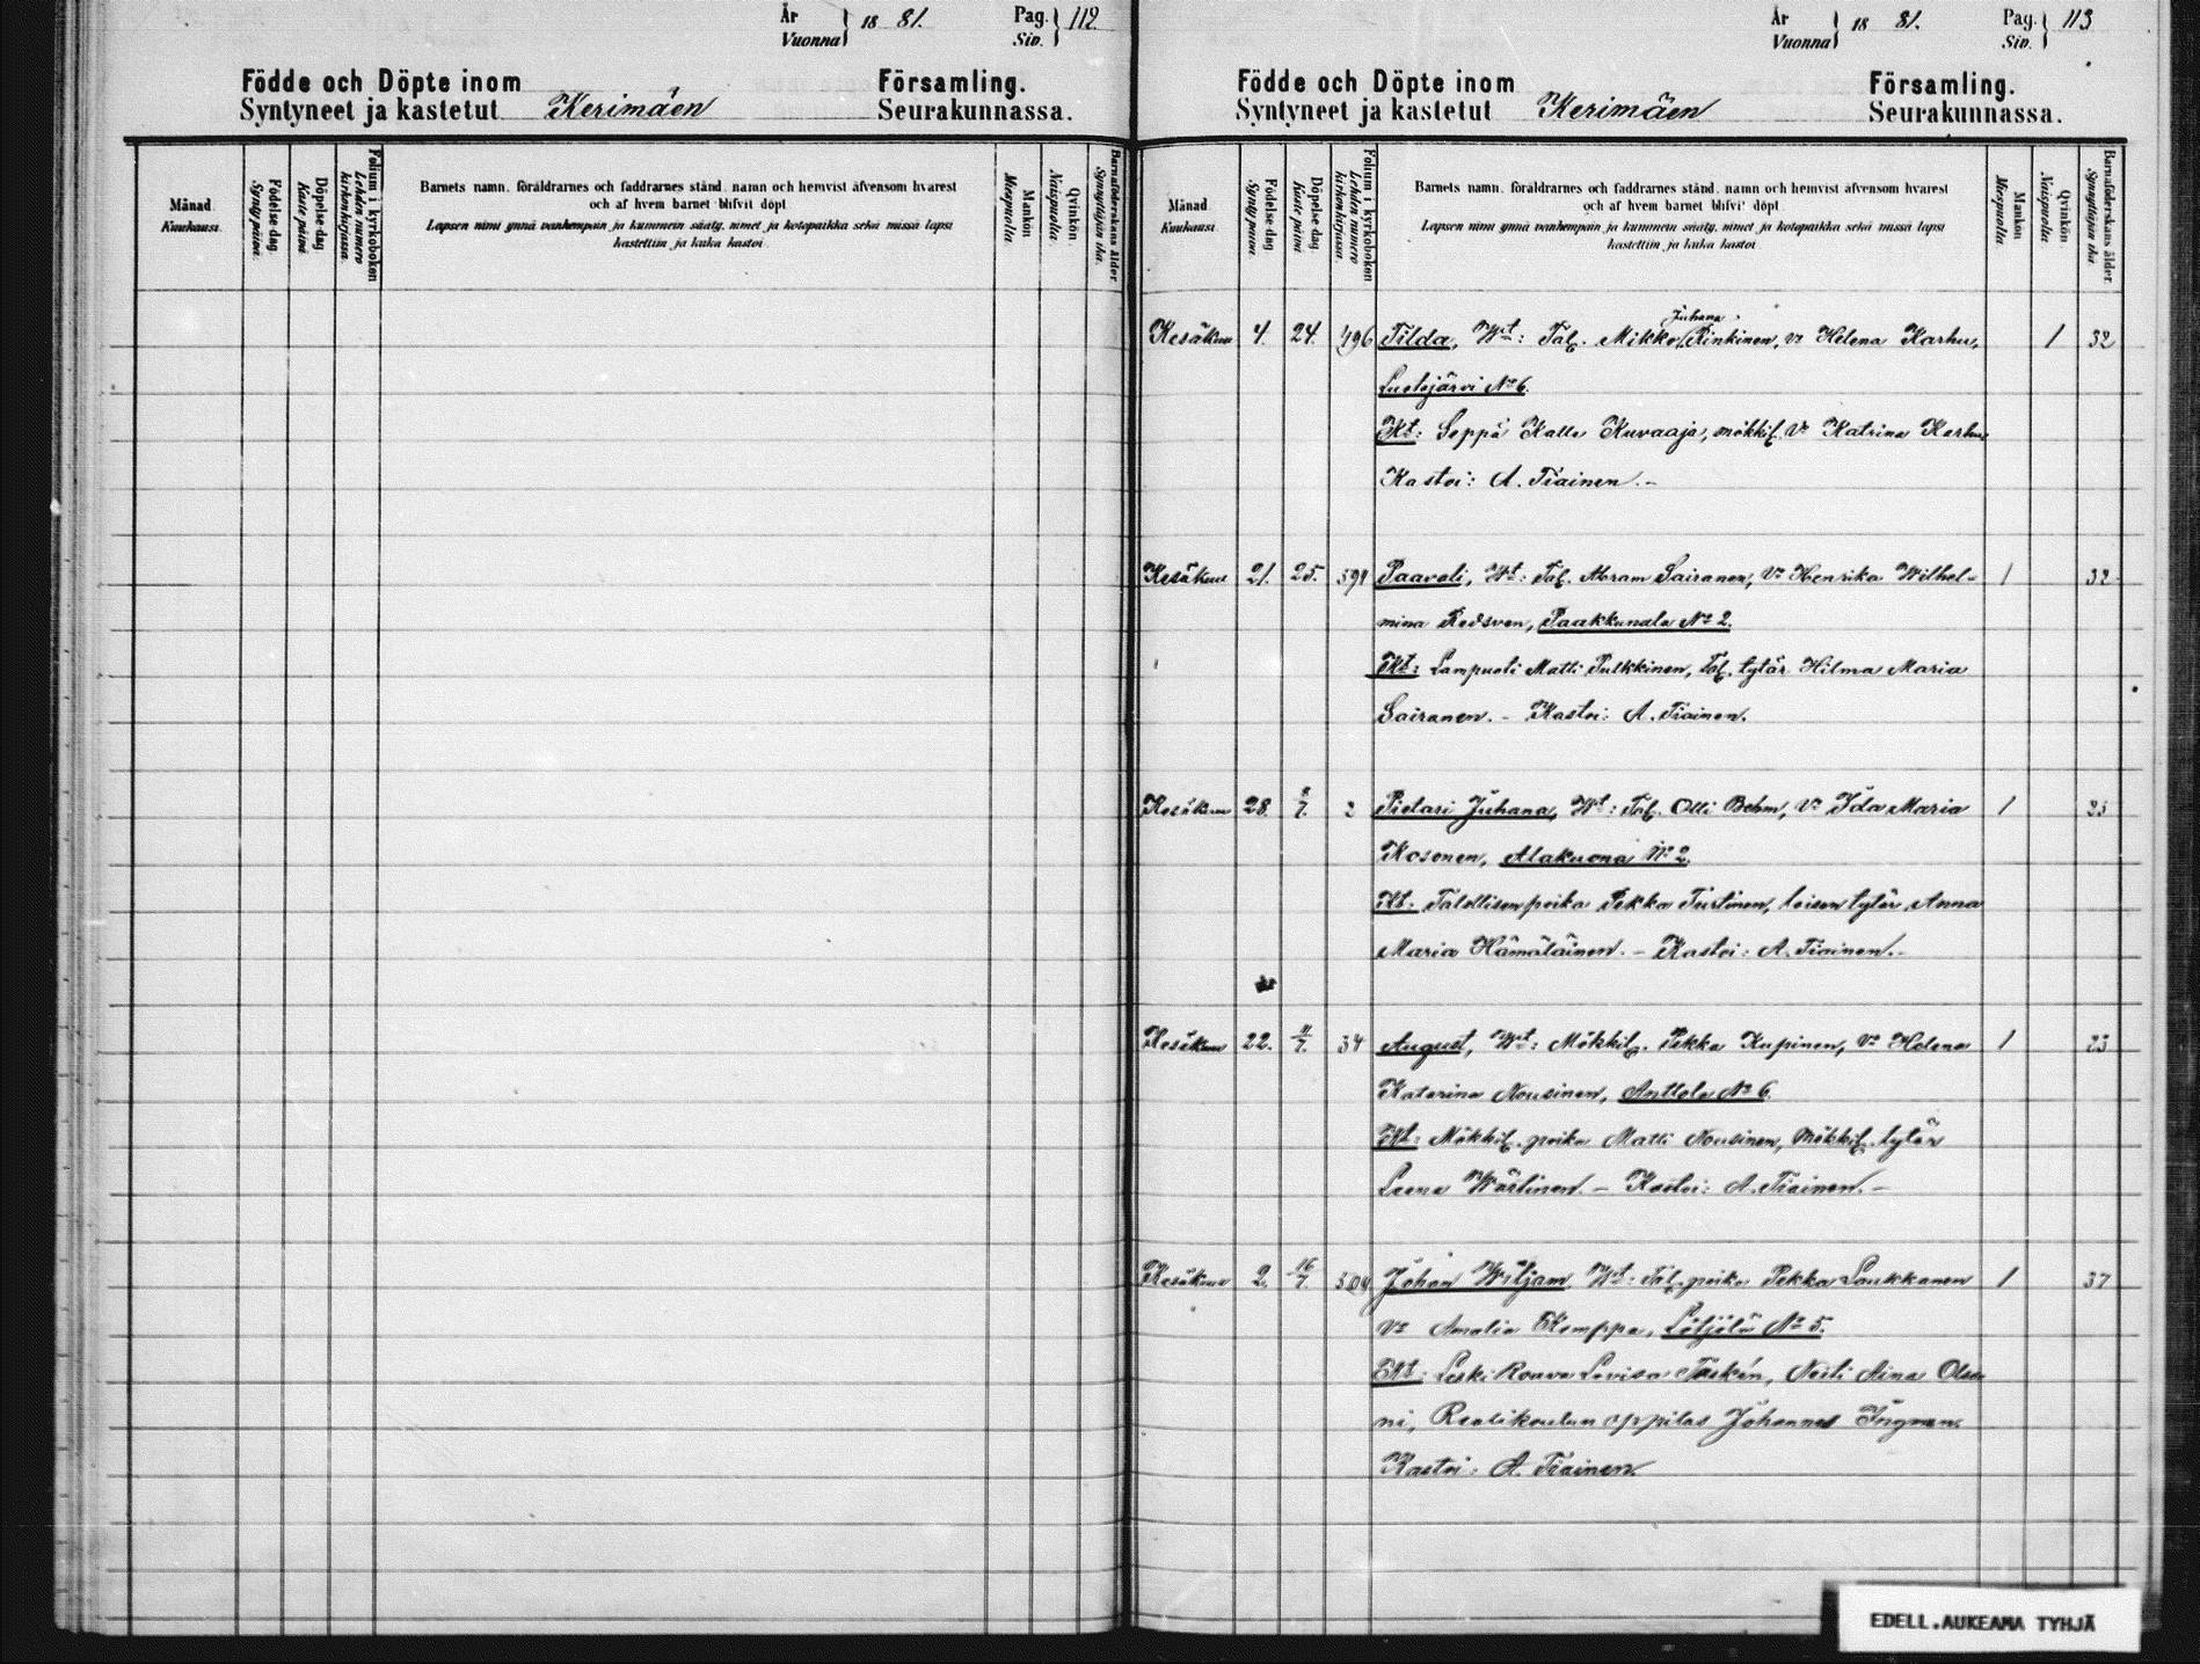 År Vuonna } 18 81. Pag. Siv. } 112.
Födde och Döpte inom Församling.
Syntyneet ja kastetut Kerimäen Seurakunnassa.
Månad Kuukausi.
Födelse-dag Synty päivä.
Döpelse-dag Kaste päivä
Folium i kyrkoboken Lehden numero kirkonkirjassa.
Barnets namn, föräldrarnes och faddrarnes stånd, namn och hemvist äfvensom hvarest
och af hvem barnet blifvit döpt
Lapsen nimi ynnä vanhempain ja kummein sääty, nimet ja kotopaikka sekä missä lapsi
kastettiin ja kuka kastoi
Mankön Miespuolta
Qvinkön Naispuolta
Barnaföderskans ålder Synnyttäjän ikä.
År Vuonna } 18 81. Pag. Siv. } 113
Födde och Döpte inom Församling.
Syntyneet ja kastetut Kerimäen Seurakunnassa.
Månad Kuukausi
Födelse-dag Synty päivä.
Döpelse-dag Kaste päivä
Folium i kyrkoboken Lehden numero kirkonkirjassa.
Barnets namn, föräldrarnes och faddrarnes stånd, namn och hemvist äfvensom hvarest
och af hvem barnet blifvit döpt
Lapsen nimi ynnä vanhempain ja kummein sääty, nimet ja kotopaikka sekä missä lapsi
kastettiin ja kuka kastoi
Mankön Miespuolta
Qvinkön Naispuolta
Barnaföderskans ålder Synnyttäjän ikä
Juhana
Kesäkuu 4. 24. 496 Tilda, Wt: Tal. Mikko Rinkinen, Vo Helena Karhu, 1 32
No 6.
Kt: Seppä Kalle Kuvaaja, mökkil. Vo Katrina Karhu
Kastoi: A. Tiainen.-
Kesäkuu 21. 25. Paavali, Wt: Tal. Abram Sairanen, Vo Henrika Wilhel- 1 32
mina Redsven, Paakkunala No 2.
Kt: Lampuoti Matti Pulkkinen, Tal. tytär Hilma Maria
Sairanen. - Kastoi: A. Tiainen.
Kesäkuu 28. 8/7. 2 Pietari Juhana, Wt: Tal. Olli Behm, Vo Ida Maria 1 25
Kosonen, Alakuona No 2.
Kt. Talollisen poika Pekka loisen tytär Anna
Maria Hämäläinen. - Kastoi: A. Tiainen.-
Kesäkuu 22. 11/7. 34 August, Wt: Mökkil. Pekka Kupinen, Vo Helena 1 23
Katarina Nousinen, Anttola No 6.
Kt: Mökkil. poika Matti Nousinen, Mökkil. tytär
Leena Wärtinen. - Kastoi: A. Tiainen. -
Kesäkuu 2. 16/7. 504 Johan Wiljam Wt: Tal. poika Pekka Laukkanen 1 37
Vo Amalia Kemppa, No 5.
Kt: Leski Rouva Lovisa Taskén, Neiti Aina Olso-
ni, Reali koulun oppilas Johannes Ingman.
Kastoi: A. Tiainen.
EDELL.AUKEAMA TYHJÄ